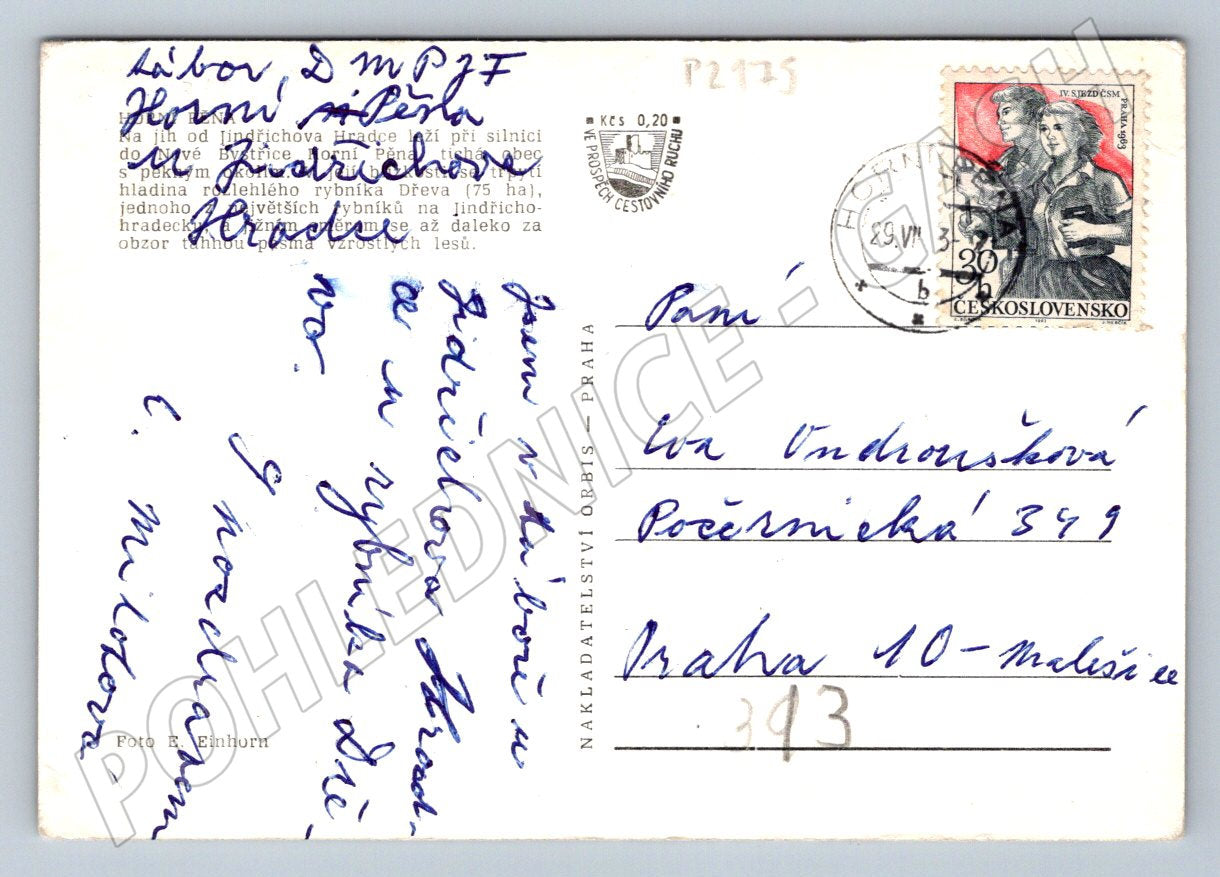 Tábor, D M P J F
Horní Pěna
u Jindřichova
Hradce
HORNÍ PĚNA
Na jih od Jindřichova Hradce leží při silnici
do Nové Bystřice Horní Pěna, tichá obec
s pěkným okolím. V blízkosti se třpytí
hladina rozlehlého rybníka Dřeva (75 ha),
jednoho z největších rybníků na Jindřicho-
hradecku a jižním směrem se až daleko za
obzor táhnou pásma vzrostlých lesů.
Jsem v táboře u
Jidřichova Hrad-
ce u rybníka Dře-
va.
S pozdravem
C. Militova
Foto E. Einhorn
NAKLADATELSTVÍ ORBIS — PRAHA
P2175
Kčs 0,20
VE PROSPĚCH CESTOVNÍHO RUCHU
HORNÍ PĚNA
b
IV. SJEZD ČSM
PRAHA 1963
30
h
ČESKOSLOVENSKO
Paní
Eva Vndroušková
Počernická 349
Praha 10 - Malešice
393
POHLEDNICE - GACH